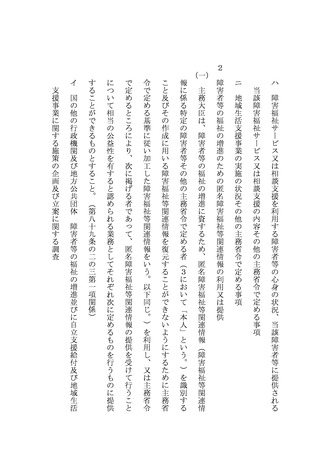 ハ　障害福祉サービス又は相談支援を利用する障害者等の心身の状況、当該障害者等に提供される
当該障害福祉サービス又は相談支援の内容その他の主務省令で定める事項
ニ　地域生活支援事業の実施の状況その他の主務省令で定める事項
２　障害者等の福祉の増進のための匿名障害福祉等関連情報の利用又は提供
㈠　主務大臣は、障害者等の福祉の増進に資するため、匿名障害福祉等関連情報（障害福祉等関連情
報に係る特定の障害者等その他の主務省令で定める者（３において「本人」という。）を識別する
こと及びその作成に用いる障害福祉等関連情報を復元することができないようにするために主務省
令で定める基準に従い加工した障害福祉等関連情報をいう。以下同じ。）を利用し、又は主務省令
で定めるところにより、次に掲げる者であって、匿名障害福祉等関連情報の提供を受けて行うこと
について相当の公益性を有すると認められる業務としてそれぞれ次に定めるものを行うものに提供
することができるものとすること。（第八十九条の二の三第一項関係）
イ　国の他の行政機関及び地方公共団体　障害者等の福祉の増進並びに自立支援給付及び地域生活
支援事業に関する施策の企画及び立案に関する調査